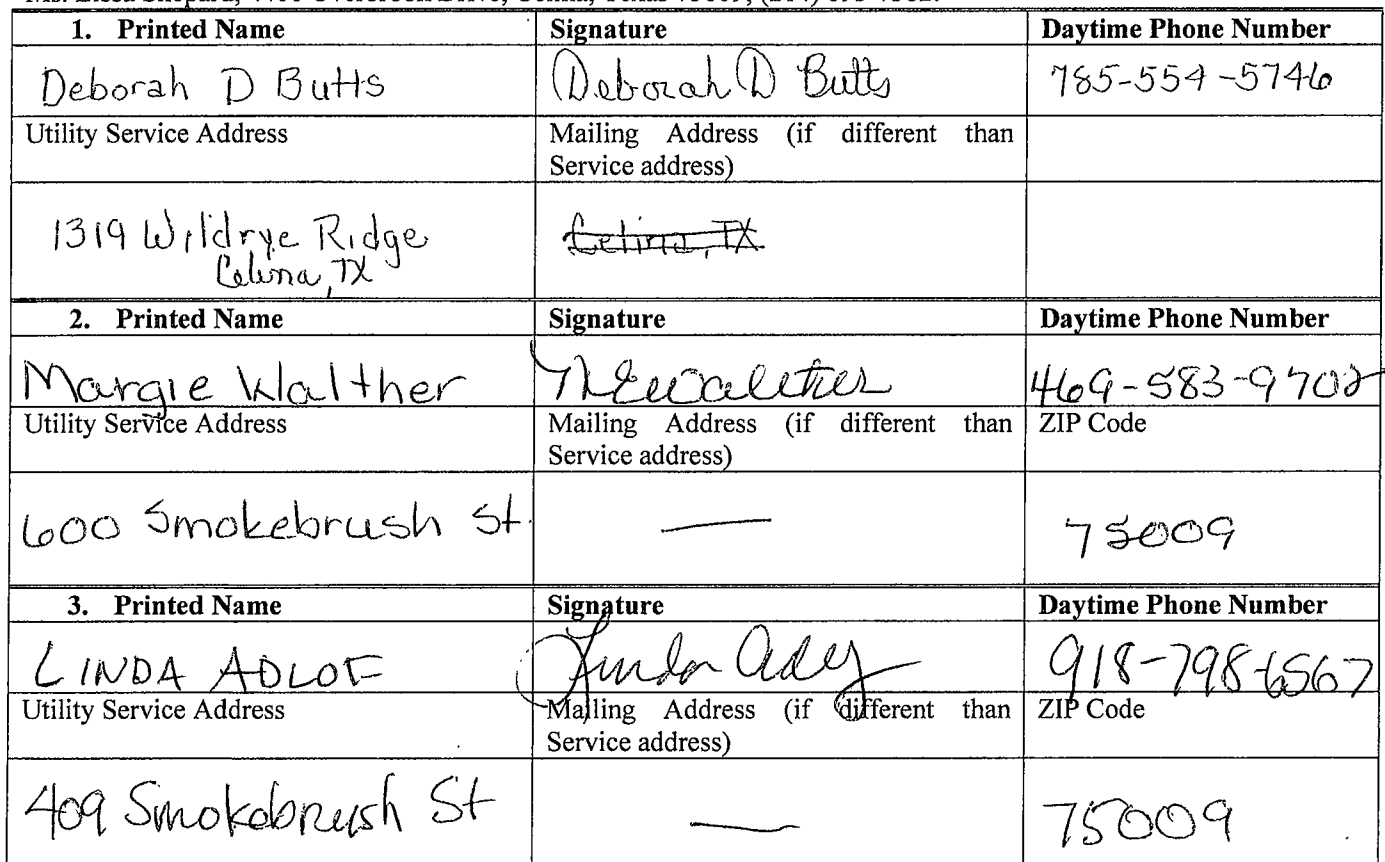 1. Printed Name Signature Daytime Phone Number
Deborah D Butts Deborah D Butts 785-554-5746
Utility Service Address Mailing Address (if different than
Service address)
1319 Wildrye Ridge Celina, TX
Celina, TX
2. Printed Name Signature Daytime Phone Number
Margie Walther MEWalther 469-583-9702
Utility Service Address Mailing Address (if different than ZIP Code
Service address)
600 Smokebrush St. — 75009
3. Printed Name Signature Daytime Phone Number
LINDA ADLOF Linda 918-798-6567
Utility Service Address Mailing Address (if different than ZIP Code
Service address)
409 Smokebrush St — 75009